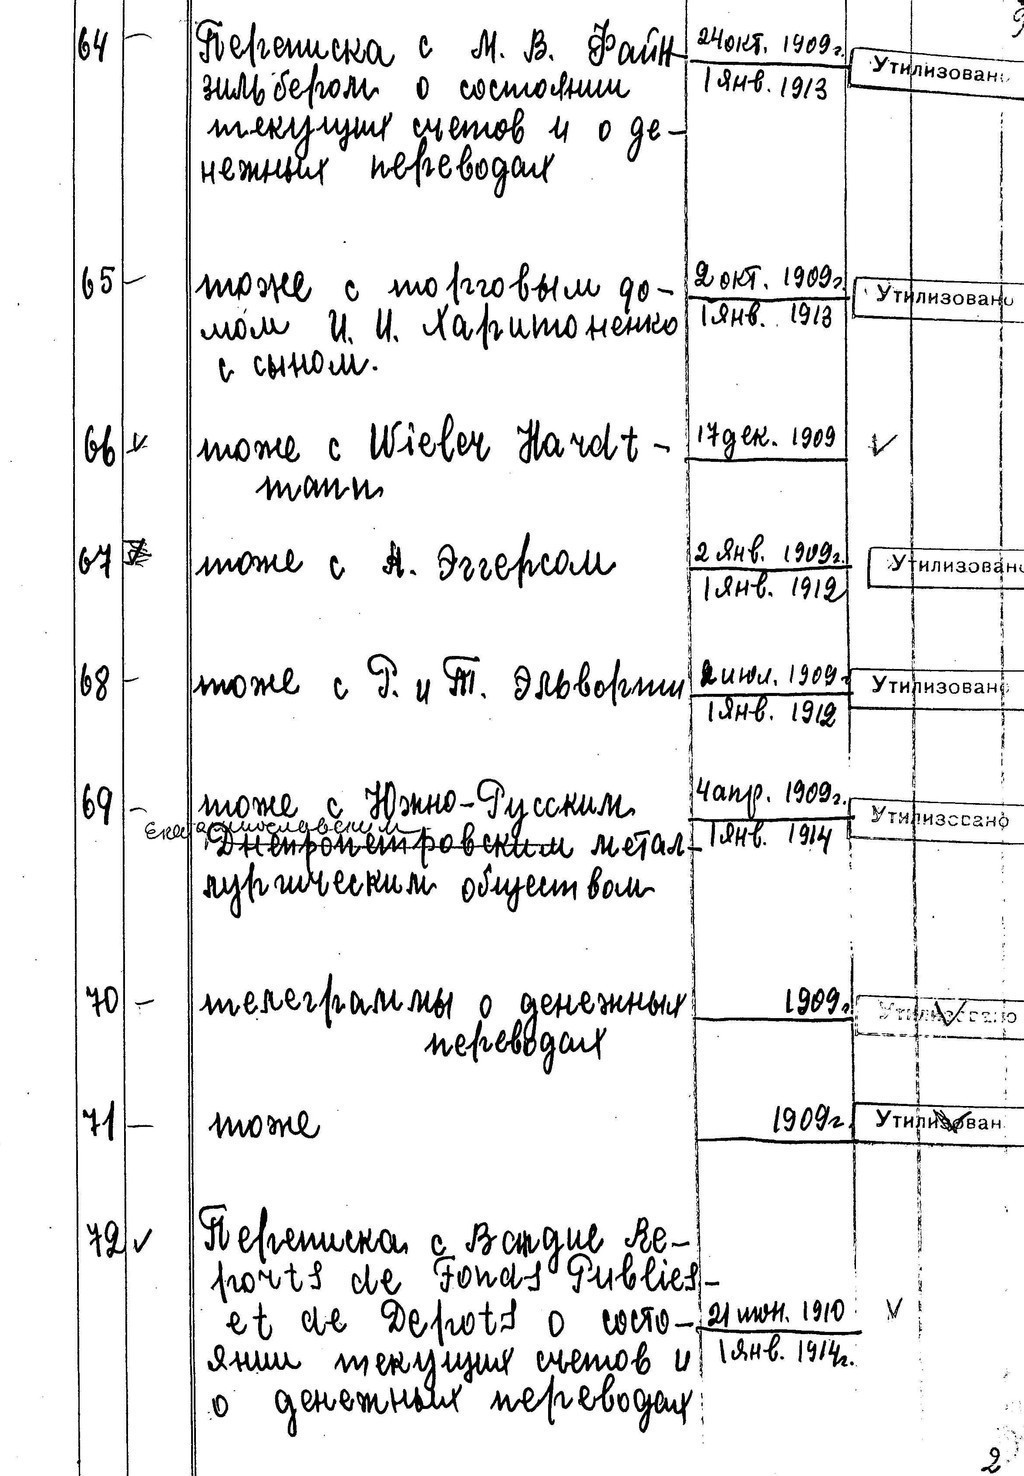 64 — Переписка с М. В. Файн- 24 окт. 1909 г. Утилизовано
зильбером о состоянии 1 янв. 1913
текущих счетов и о де-
нежных переводах
65 — тоже с торговым до- 2 окт. 1909 г. Утилизовано
мом И. И. Харитоненко 1 янв. 1913
с сыном.
66 v тоже с Wieler Hardt- 17 дек. 1909 v
mann
67 v тоже с А. Эггерсом 2 янв. 1909 г. Утилизовано
1 янв. 1912
68 — тоже с Р. и Т. Эльворти 2 июл. 1909 г. Утилизовано
1 янв. 1912
69 — тоже с Южно-Русским 4 апр. 1909 г. Утилизовано
Екатеринославским
Днепропетровским метал- 1 янв. 1914
лургическим обществом
70 — телеграммы о денежных 1909 г. Утилизовано
переводах
71 — тоже 1909 г. Утилизован
72 v Переписка с Banque Re-
ports de Fonds Publies-
et de Depots о состо- 21 июн. 1910 v
янии текущих счетов и 1 янв. 1914 г.
о денежных переводах
2